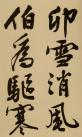 卯雪消風
伯為驅寒